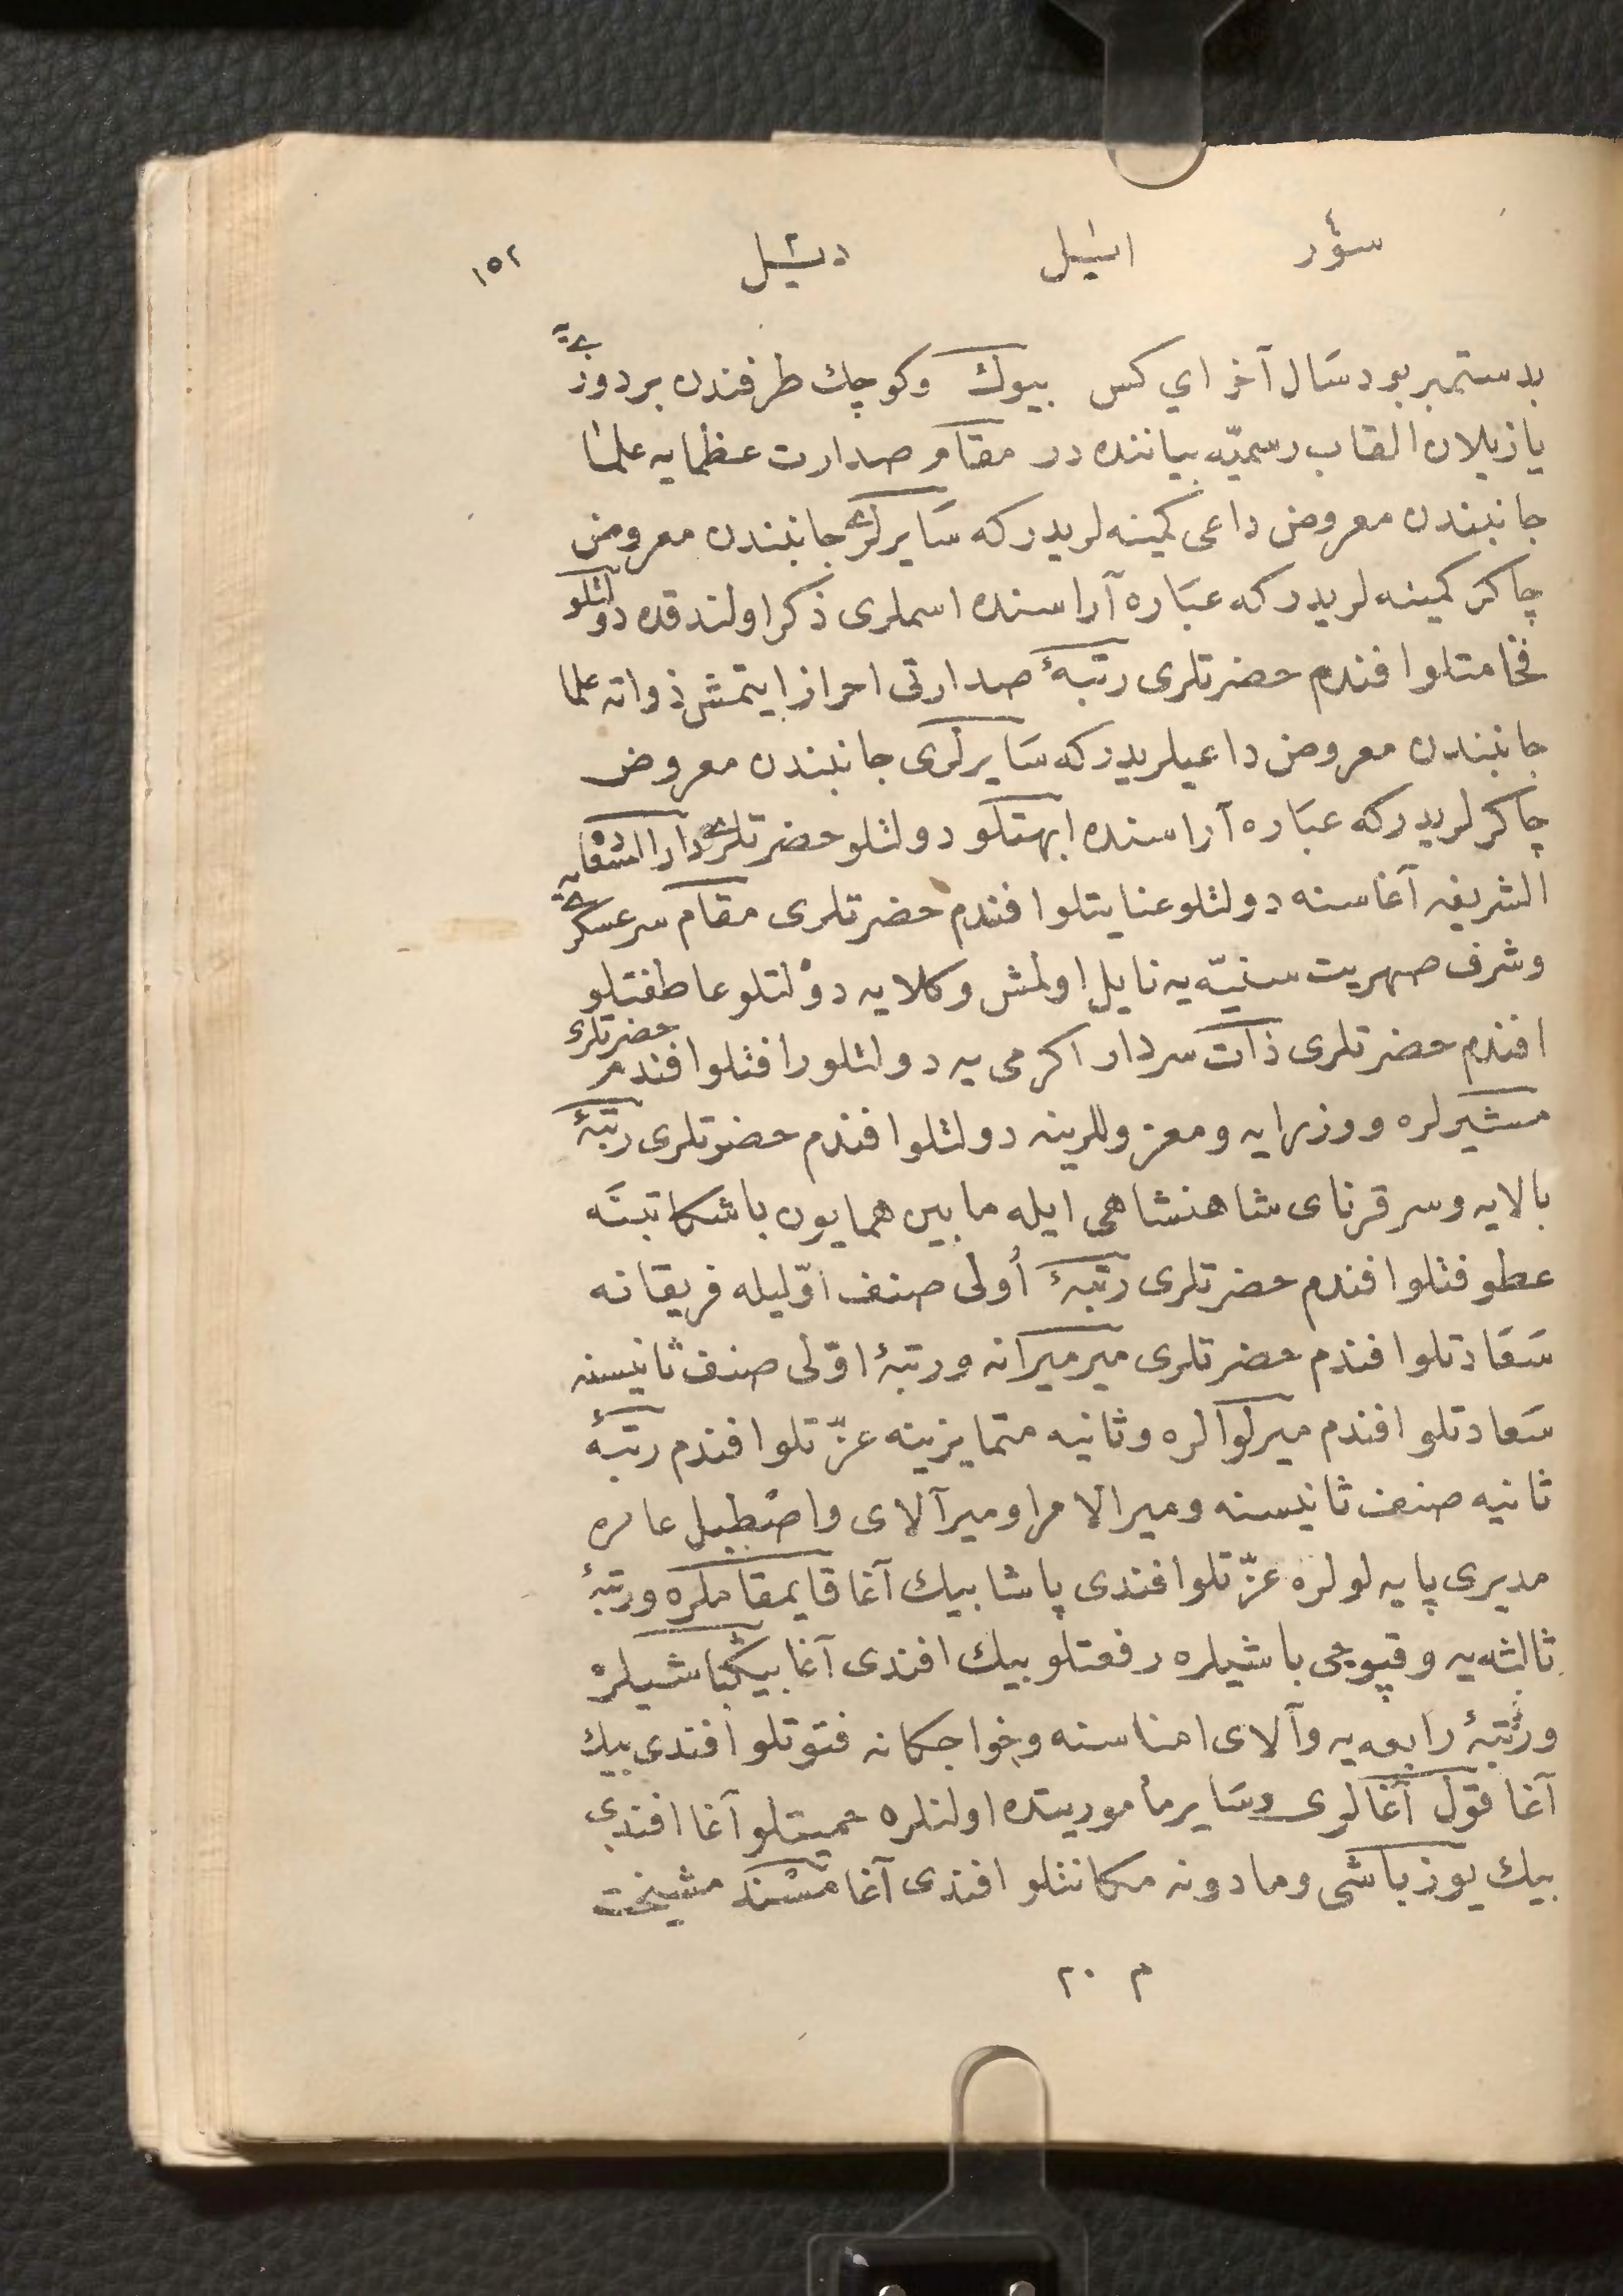 سؤر اسٔیل دسٔیل ١٥٢
بد ستمبر بود سَال آخر اي كس بیوك وكوچك طرفندن بر دوزیه
یازیلان القاب رسمیّه بیاننده در مقام صدارت عظمایه علما
جانبندن معروض داعی كمینه لریدركه سَایرلری جانبندن معروض
چاكر كمینه لریدركه عبَاره آراسنده اسملری ذكر اولندقده دولتلو
فخامتلو افندم حضرتلری رتبۀ صدارتی احراز ایتمش ذواته علما
جانبندن معروض داعیلریدركه سَایرلری جانبندن معروض
چاكرلریدركه عبَاره آراسنده ابهتلو دولتلو حضرتلری دارالسّعادة
الشریفه آغاسنه دولتلو عنایتلو افندم حضرتلری مقام سرعسكری یه
وشرف صهریت سنیّه یه نایل اولمش وكلایه دولتلو عاطفتلو
افندم حضرتلری ذات سردار اكرمی یه دولتلو رافتلو افندم حضرتلری
مشیرلره ووزرایه ومعزوللرینه دولتلو افندم حضرتلری رتبۀ
بالایه وسرقرنای شاهنشاهی ایله مابین همایون باشكاتبنه
عطوفتلو افندم حضرتلری رتبۀ أولی صنف اوّلیله فریقانه
سَعَادتلو افندم حضرتلری میرمیرانه ورتبۀ اوّلی صنف ثانیسنه
سَعادتلو افندم میرلوالره وثانیه متمایزینه عزّتلو افندم رتبۀ
ثانیه صنف ثانیسنه ومیرالامرا ومیرآلای واصطبل عامره
مدیری پایه لولره عزّتلو افندی پاشا بیك آغا قایمقاملره ورتبۀ
ثالثه یه وقپوجی باشیلره رفعتلو بیك افندی آغا بیكباشیلره
ورتبۀ رابعه یه وآلای امناسنه وخواجكانه فتوتلو افندی بیك
آغا قول آغالری وسَایر مأموریتده اولنلره حمیتلو آغا افندی
بیك یوزباشی ومادونه مكانتلو افندی آغا مسند مشیخت
م ٢٠